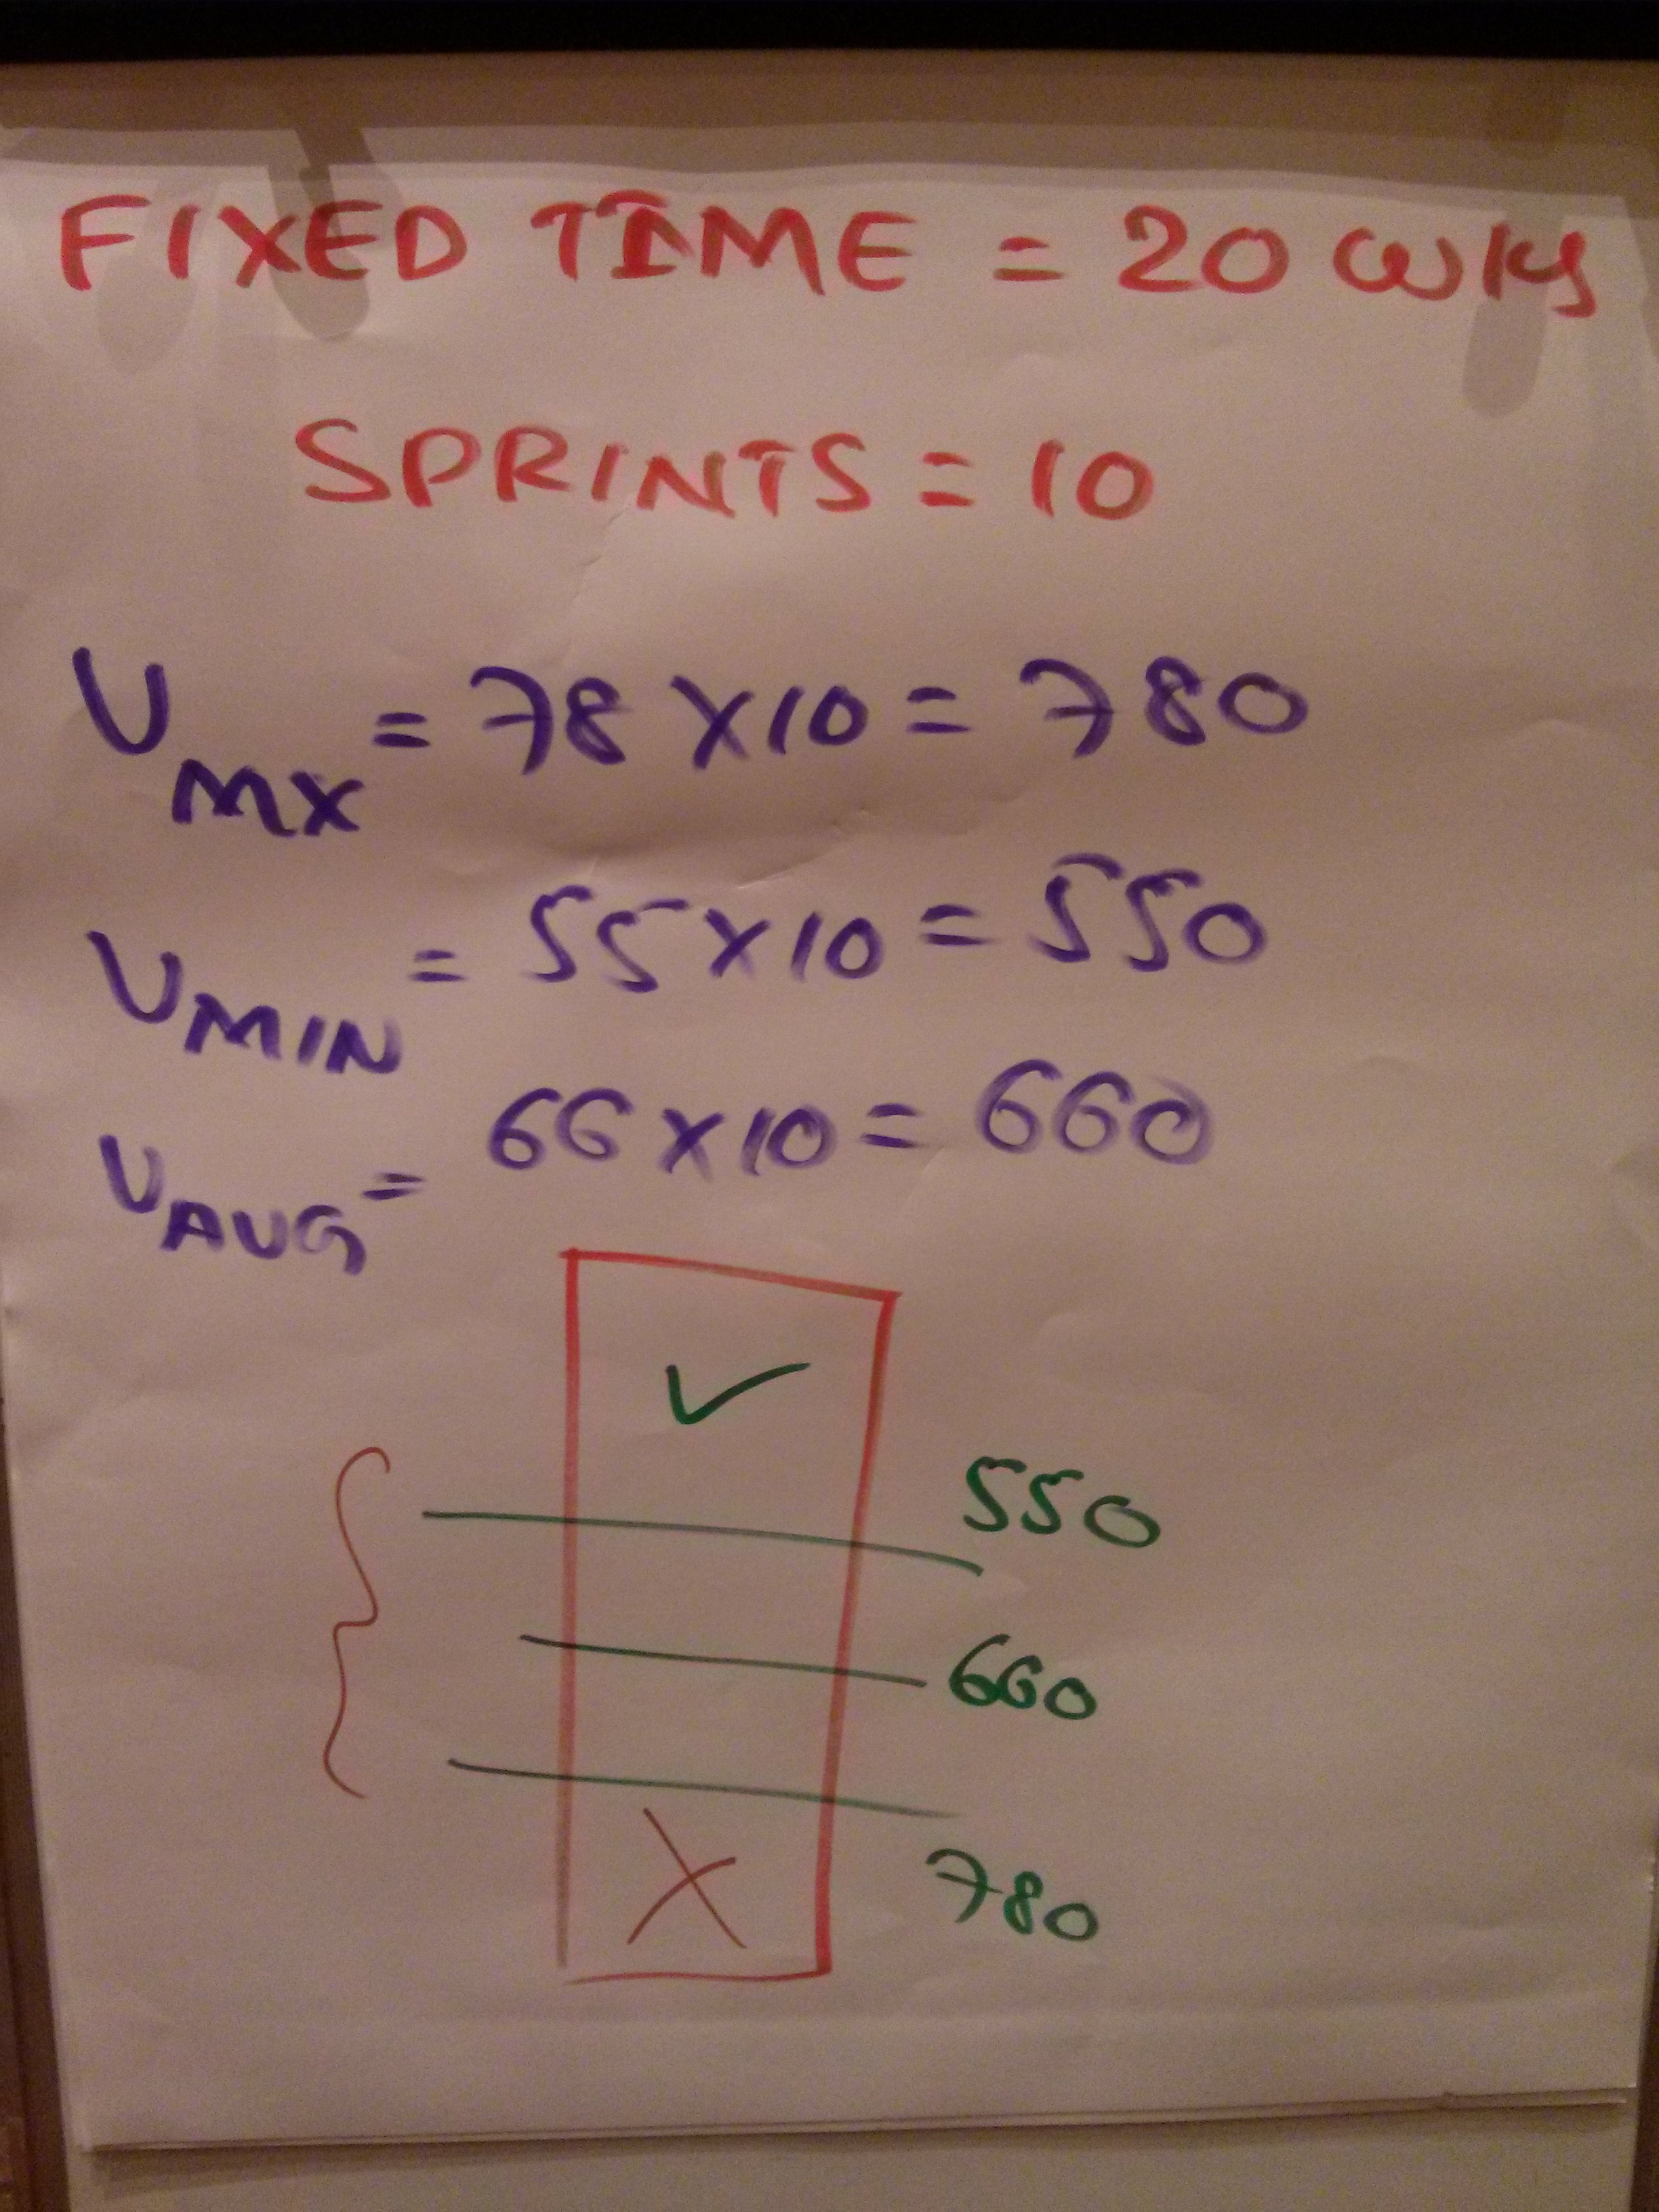 FIXED TIME = 20 WKS
SPRINTS = 10
VMX = 78 X 10 = 780
VMIN = 55 X 10 = 550
VAVG = 66 X 10 = 660
✓
550
660
780
X